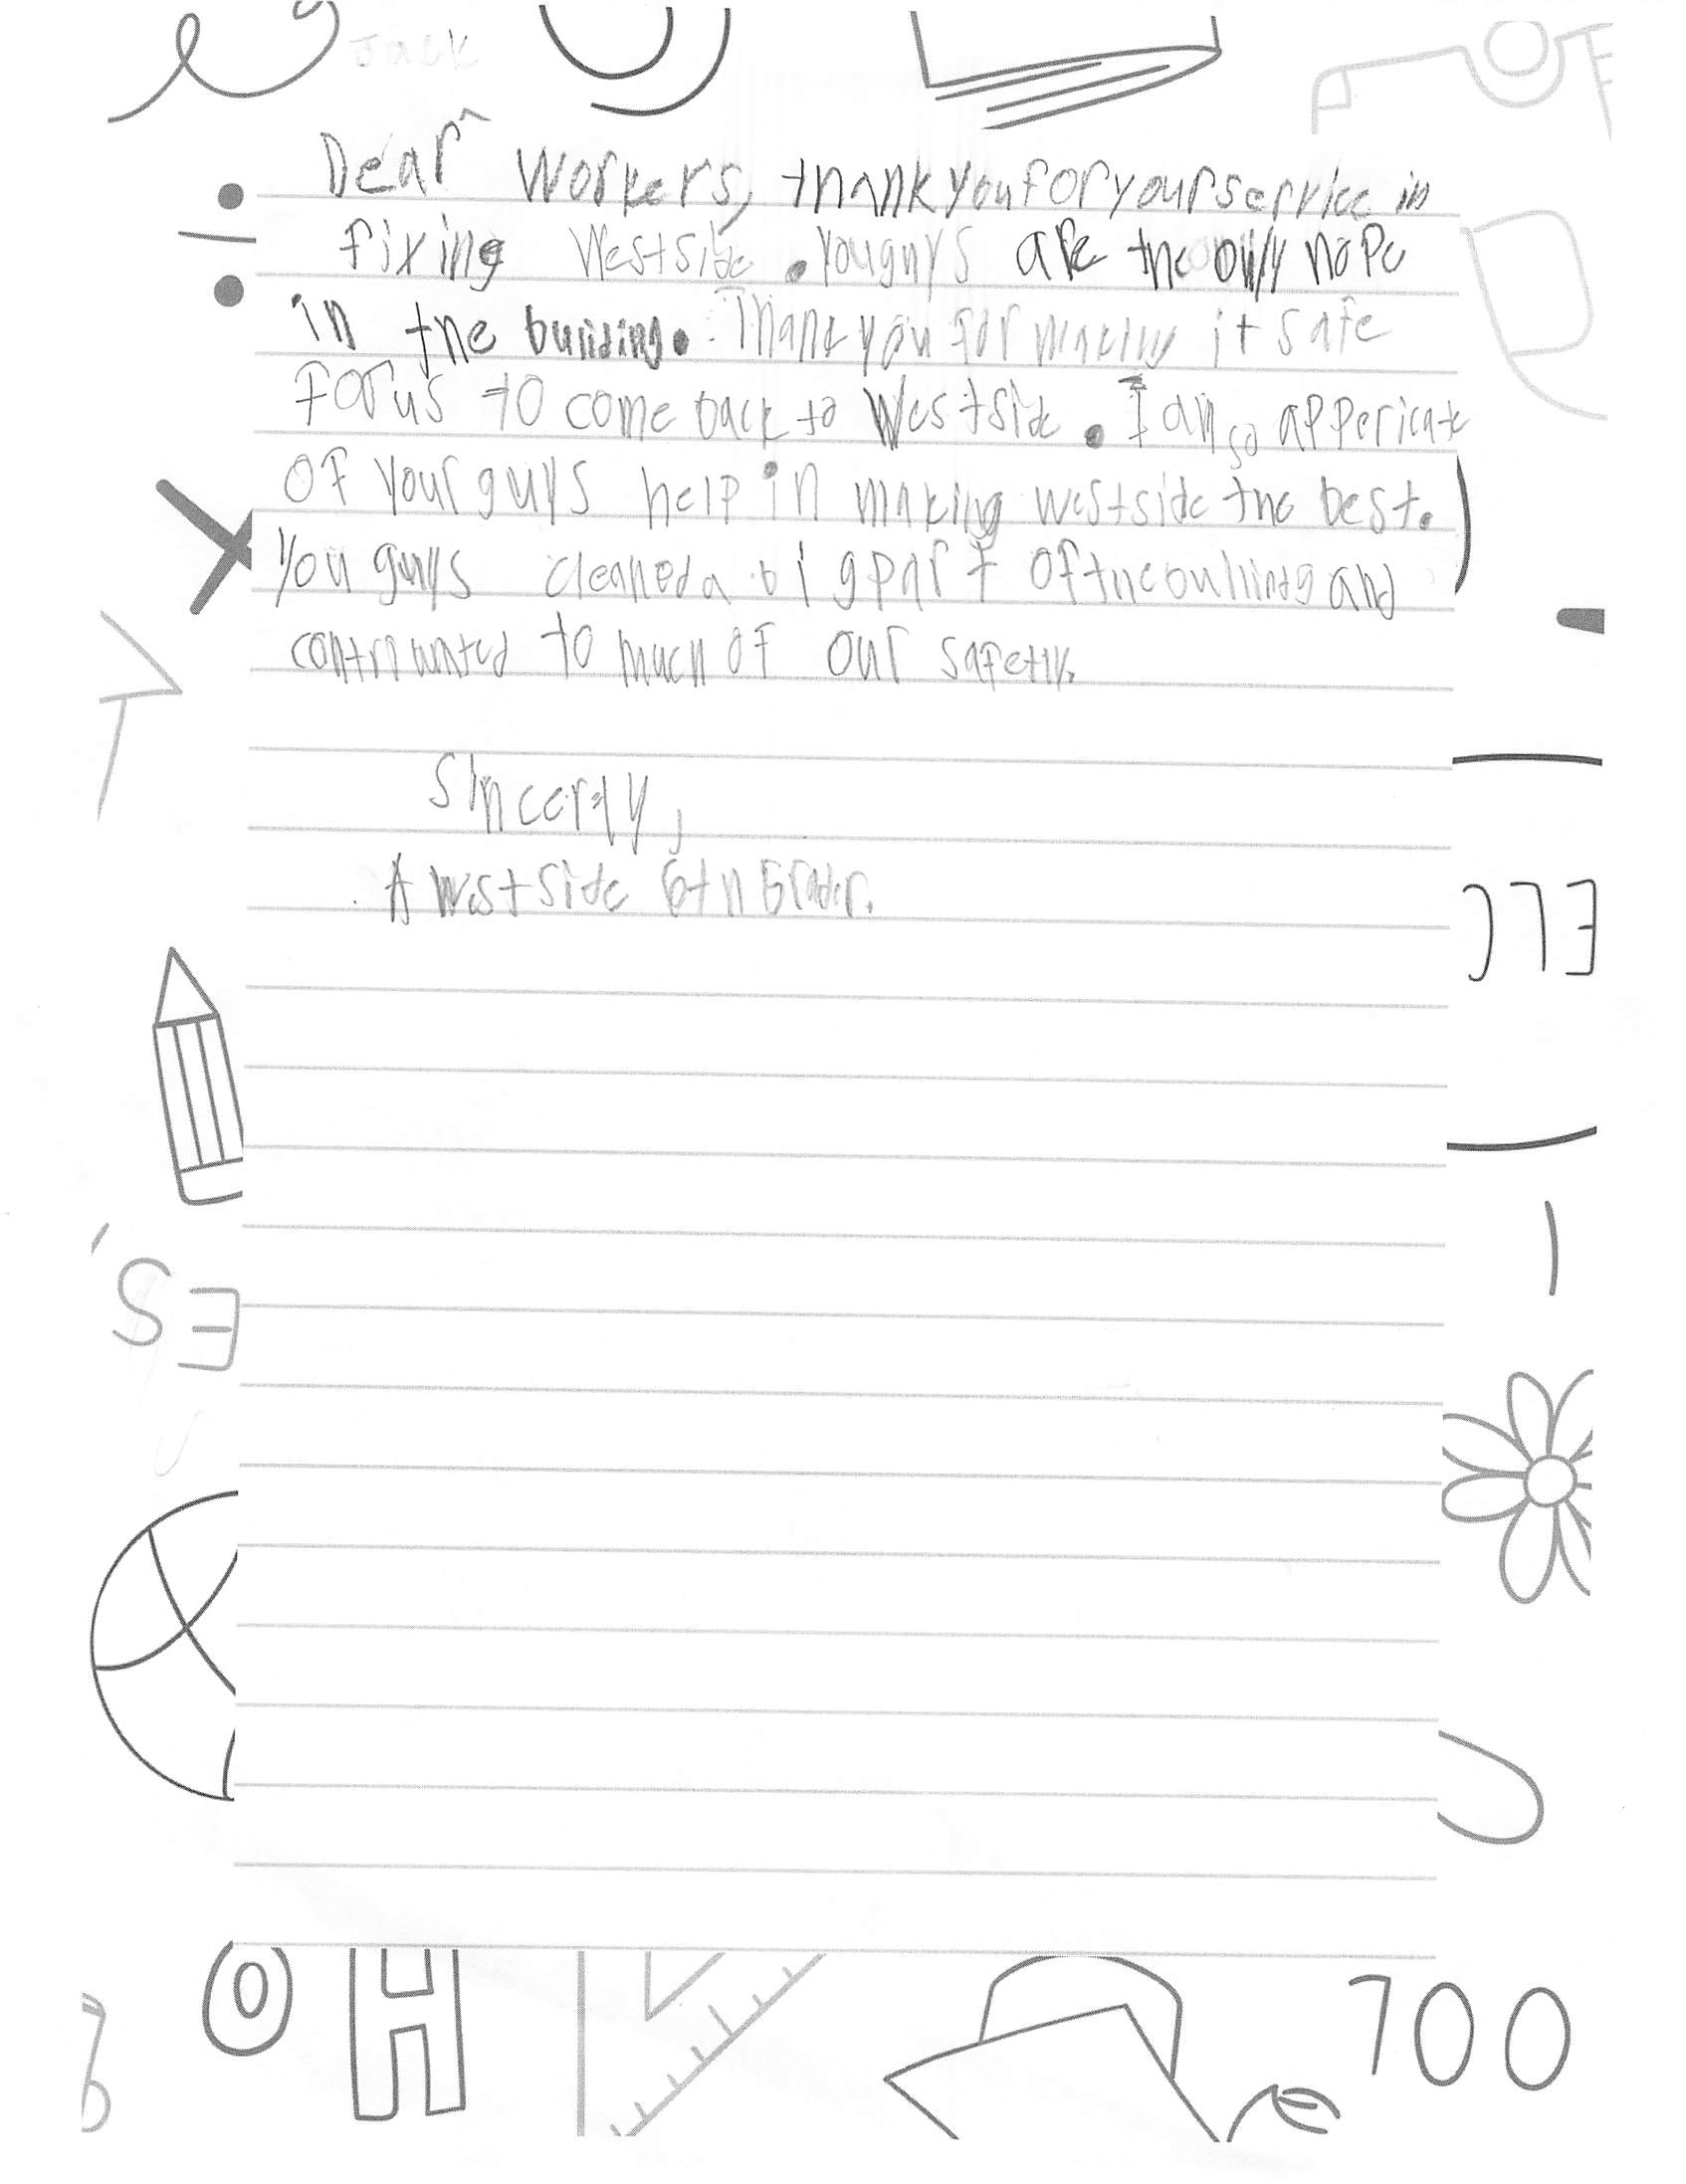 Jack
Dear Workers, thank you for your service in
fixing Westside. You guys are the only hope
in the building. Thank you for making it safe
For us to come back to Westside. I am so apperícate
OF your guys help in making westside the best.
You guys cleaned a big part of the builling and
contributed to much of our safetly.
Sincerly,
A Westside 6th Grader.
ES
ELC
OH
100